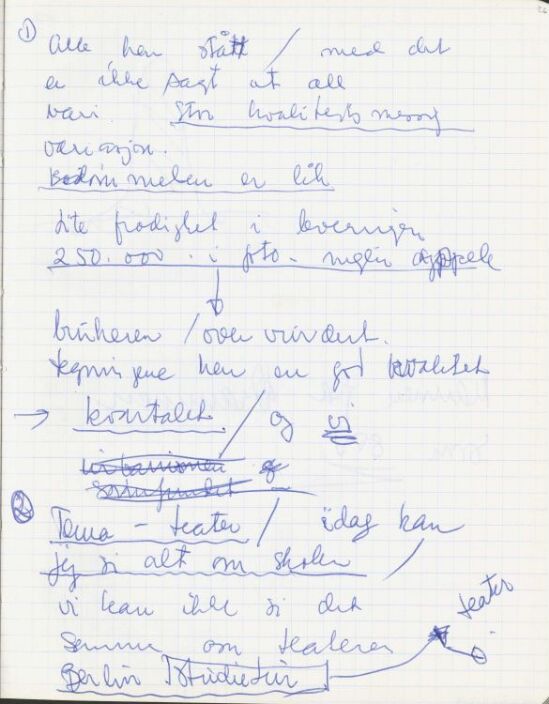 ① Alle har stått / med det
er ikke sagt at all
vari. Stor kvalitetsmessig
variasjon.
er lik
Lite frodighet i leveringen
250.000 . i foto.
brukeren / over
tegningene har en god kvalitet
→ kvartalet / og vi
urbanismen og
samfunnet
② Tema - teater / idag kan
jeg si alt om skolen /
vi kan ikke si det
samme om teateret
teater
Berlin Studietur